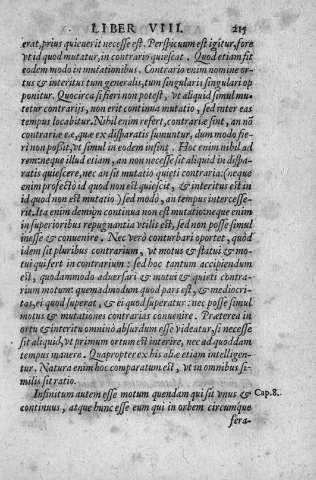 LIBER VIII. 215
erat, prius quieuerit necesse est. Perspicuum est igitur, fore
vt id quod mutatur, in contrario quiescat. Quod etiam fit
eodem modo in mutationibus. Contrario enim nomine or-
tus & interitus tum generalis, tum singularis singulari op
ponitur. Quocirca si fieri non potest, vt aliquid simul mu-
tetur contrarijs, non erit continua mutatio, sed inter eas
tempus locabitur. Nihil enim refert, contrariæ sint, an nō
contrariæ eæ, quæ ex disparatis sumuntur, dum modo fie-
ri non possit, vt simul in eodem insint. Hoc enim nihil ad
rem: neque illud etiam, an non necesse sit aliquid in dispa-
ratis quiescere, nec an sit mutatio quieti contraria: (neque
enim profectò id quod non est quiescit, & interitus est in
id quod non est mutatio) sed modo, an tempus intercesse-
rit. Ita enim demum continua non est mutatio: neque enim
in superioribus repugnantia vtilis est, sed non posse simul
inesse & conuenire. Nec verò conturbari oportet, quòd
idem sit pluribus contrarium, vt motus & status & mo-
tui qui fertur in contrarium: sed hoc tantum accipiendum
est, quodammodo aduersari & motus & quieti contra-
rium motum: quemadmodum quod pars est, & mediocri-
tas, ei quod superat, & ei quod superatur: nec posse simul
motus & mutationes contrarias conuenire. Præterea in
ortu & interitu omninò absurdum esse videatur, si necesse
sit aliquid, vt primum ortum est interire, nec ad quoddam
tempus manere. Quapropter ex his aliæ etiam intelligen-
tur. Natura enim hoc comparatum est, vt in omnibus si-
milis sit ratio.
Infinitum autem esse motum quendam qui sit vnus & Cap. 8.
continuus, atque hunc esse eum qui in orbem circumque
fera-